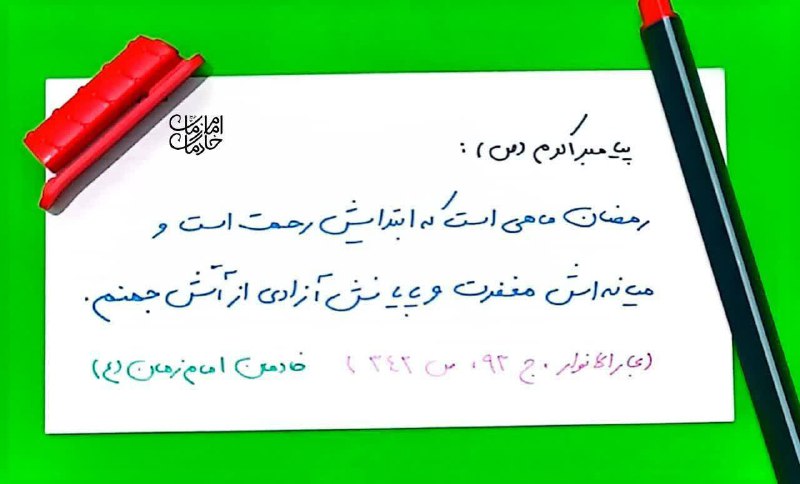 امام زمان
خادمان
پیامبر اکرم (ص):
رمضان ماهی است که ابتدایش رحمت است و
میانه‌اش مغفرت و پایانش آزادی از آتش جهنم.
(بحارالانوار، ج ۹۳، ص ۳۴۲) خادمین امام زمان (ع)